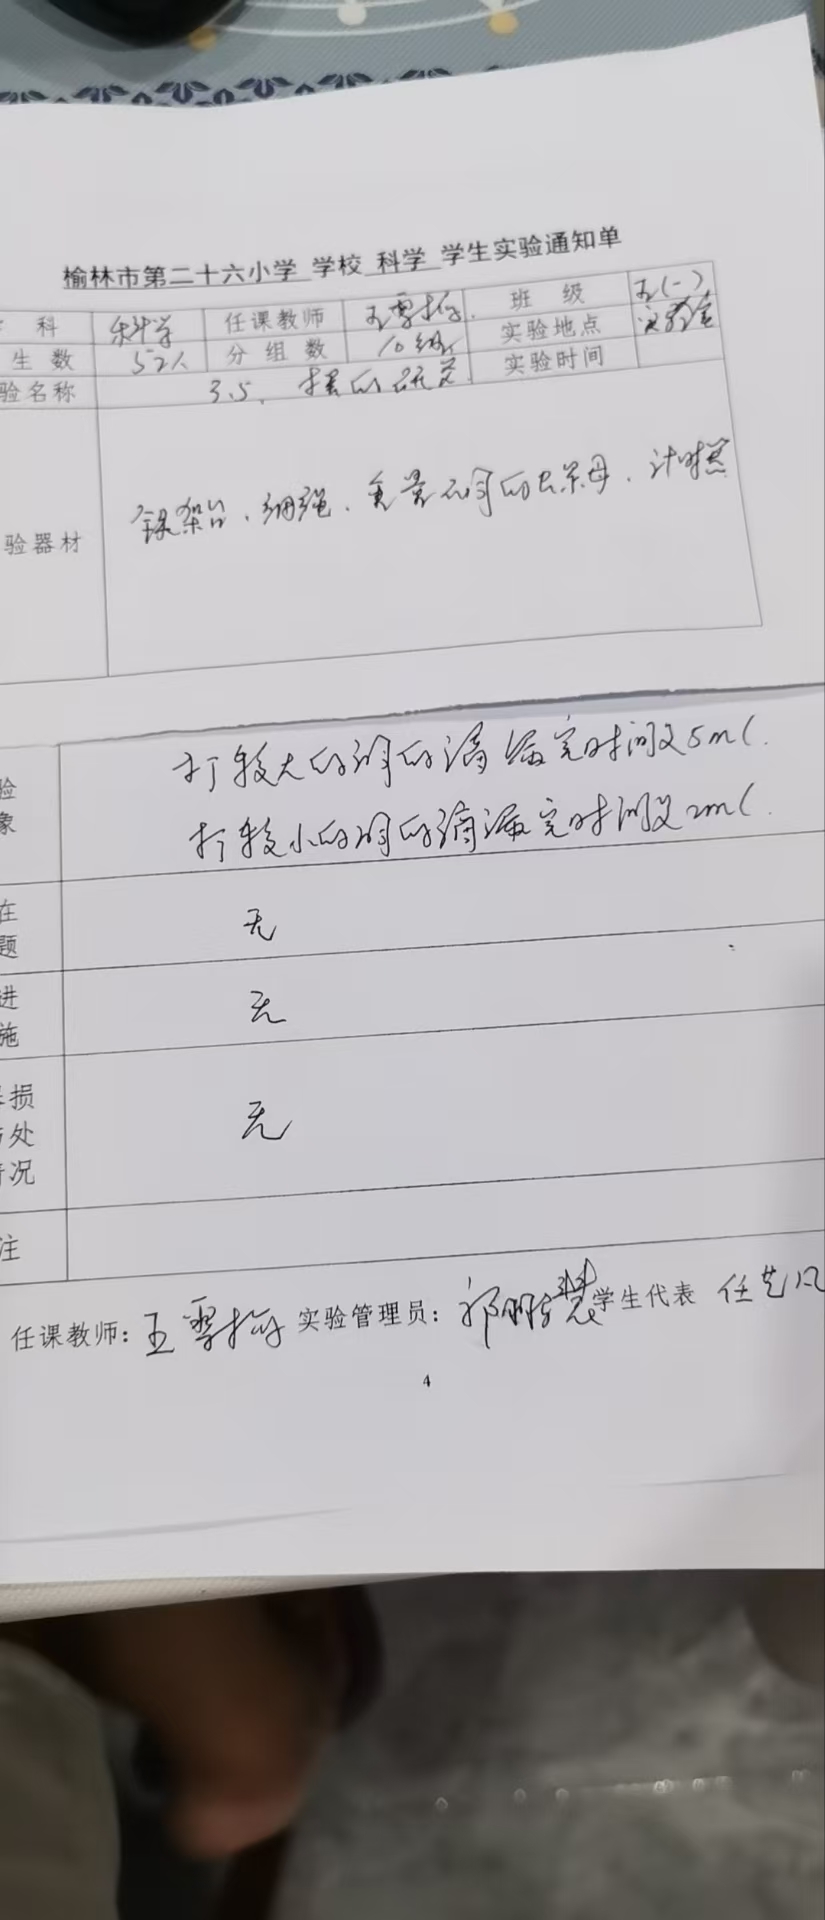 榆林市第二十六小学 学校 科学 学生实验通知单
科 科学 任课教师 王雪梅 班 级 五(一)
生数 52人 分组数 10组 实验地点 实验室
实验时间
验名称 3.5. 摆的研究
验器材 铁架台、细绳、重量不同的 母、计时器
验 打较大的洞的滴漏完时间 5ml.
象 打较小的洞的滴漏完时间 2ml.
在
题 无
进
施 无
损
处 无
况
注
任课教师: 王雪梅 实验管理员: 学生代表 任
4